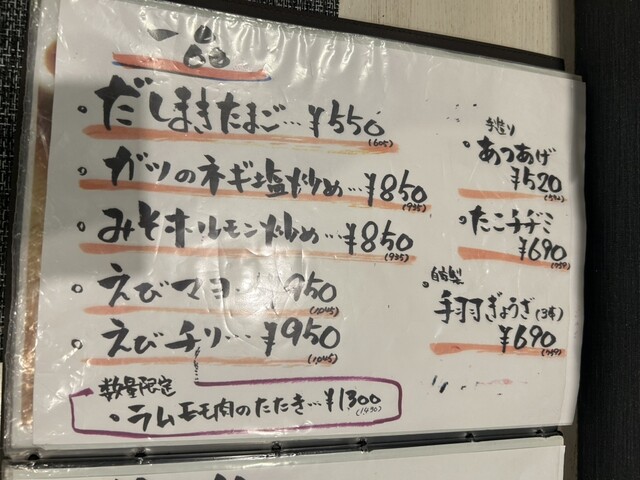 一品
だしまきたまご…¥550
(605)
ガツのネギ塩炒め…¥850
(935)
みそホルモン炒め…¥850
(935)
えびマヨ…¥950
(1045)
えびチリ…¥950
(1045)
数量限定
ラムモモ肉のたたき…¥1300
(1430)
手造り
あつあげ
¥520
たこチヂミ
¥690
(759)
自家製
手羽ぎょうざ(3本)
¥690
(759)